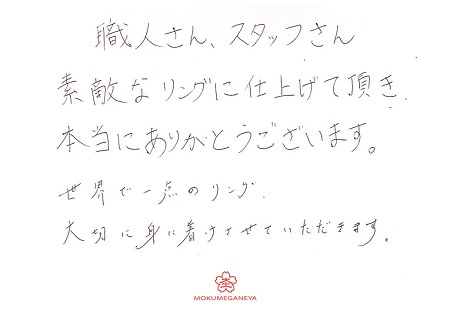 職人さん、スタッフさん
素敵なリングに仕上げて頂き、
本当にありがとうございます。
世界で一点のリング、
大切に身に着けさせていただきます。
MOKUMEGANEYA